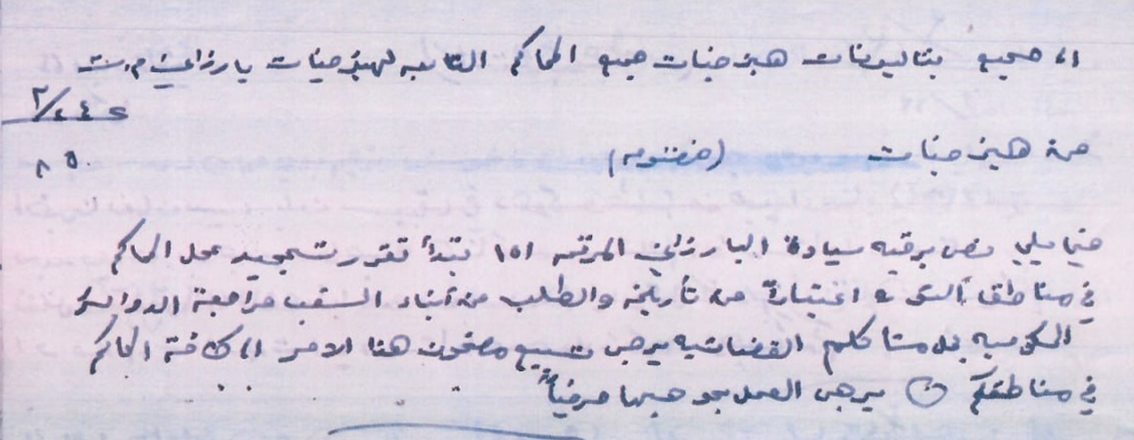 الى جميع بتاليونات هيزجنبات جميع المحاكم التابعه لهيزجنبات بارزاني م.ت
٢/٤٤٤
٨ ٥
من هيزجنبات (مختوم)
فيما يلي نص برقيه سيادة البارزاني المرقمه ١٥١ بتدأ تقرر تجميد عمل المحاكم
في مناطق الثورة اعتبارا من تأريخه والطلب من أبناء الشعب مراجعة الدوائر
الحكوميه لحل مشاكلهم القضائيه يرجى تبليغ مضمون هذا الامر الى كافة المحاكم
في مناطقكم (.) يرجى العمل بموجبها حرفياً